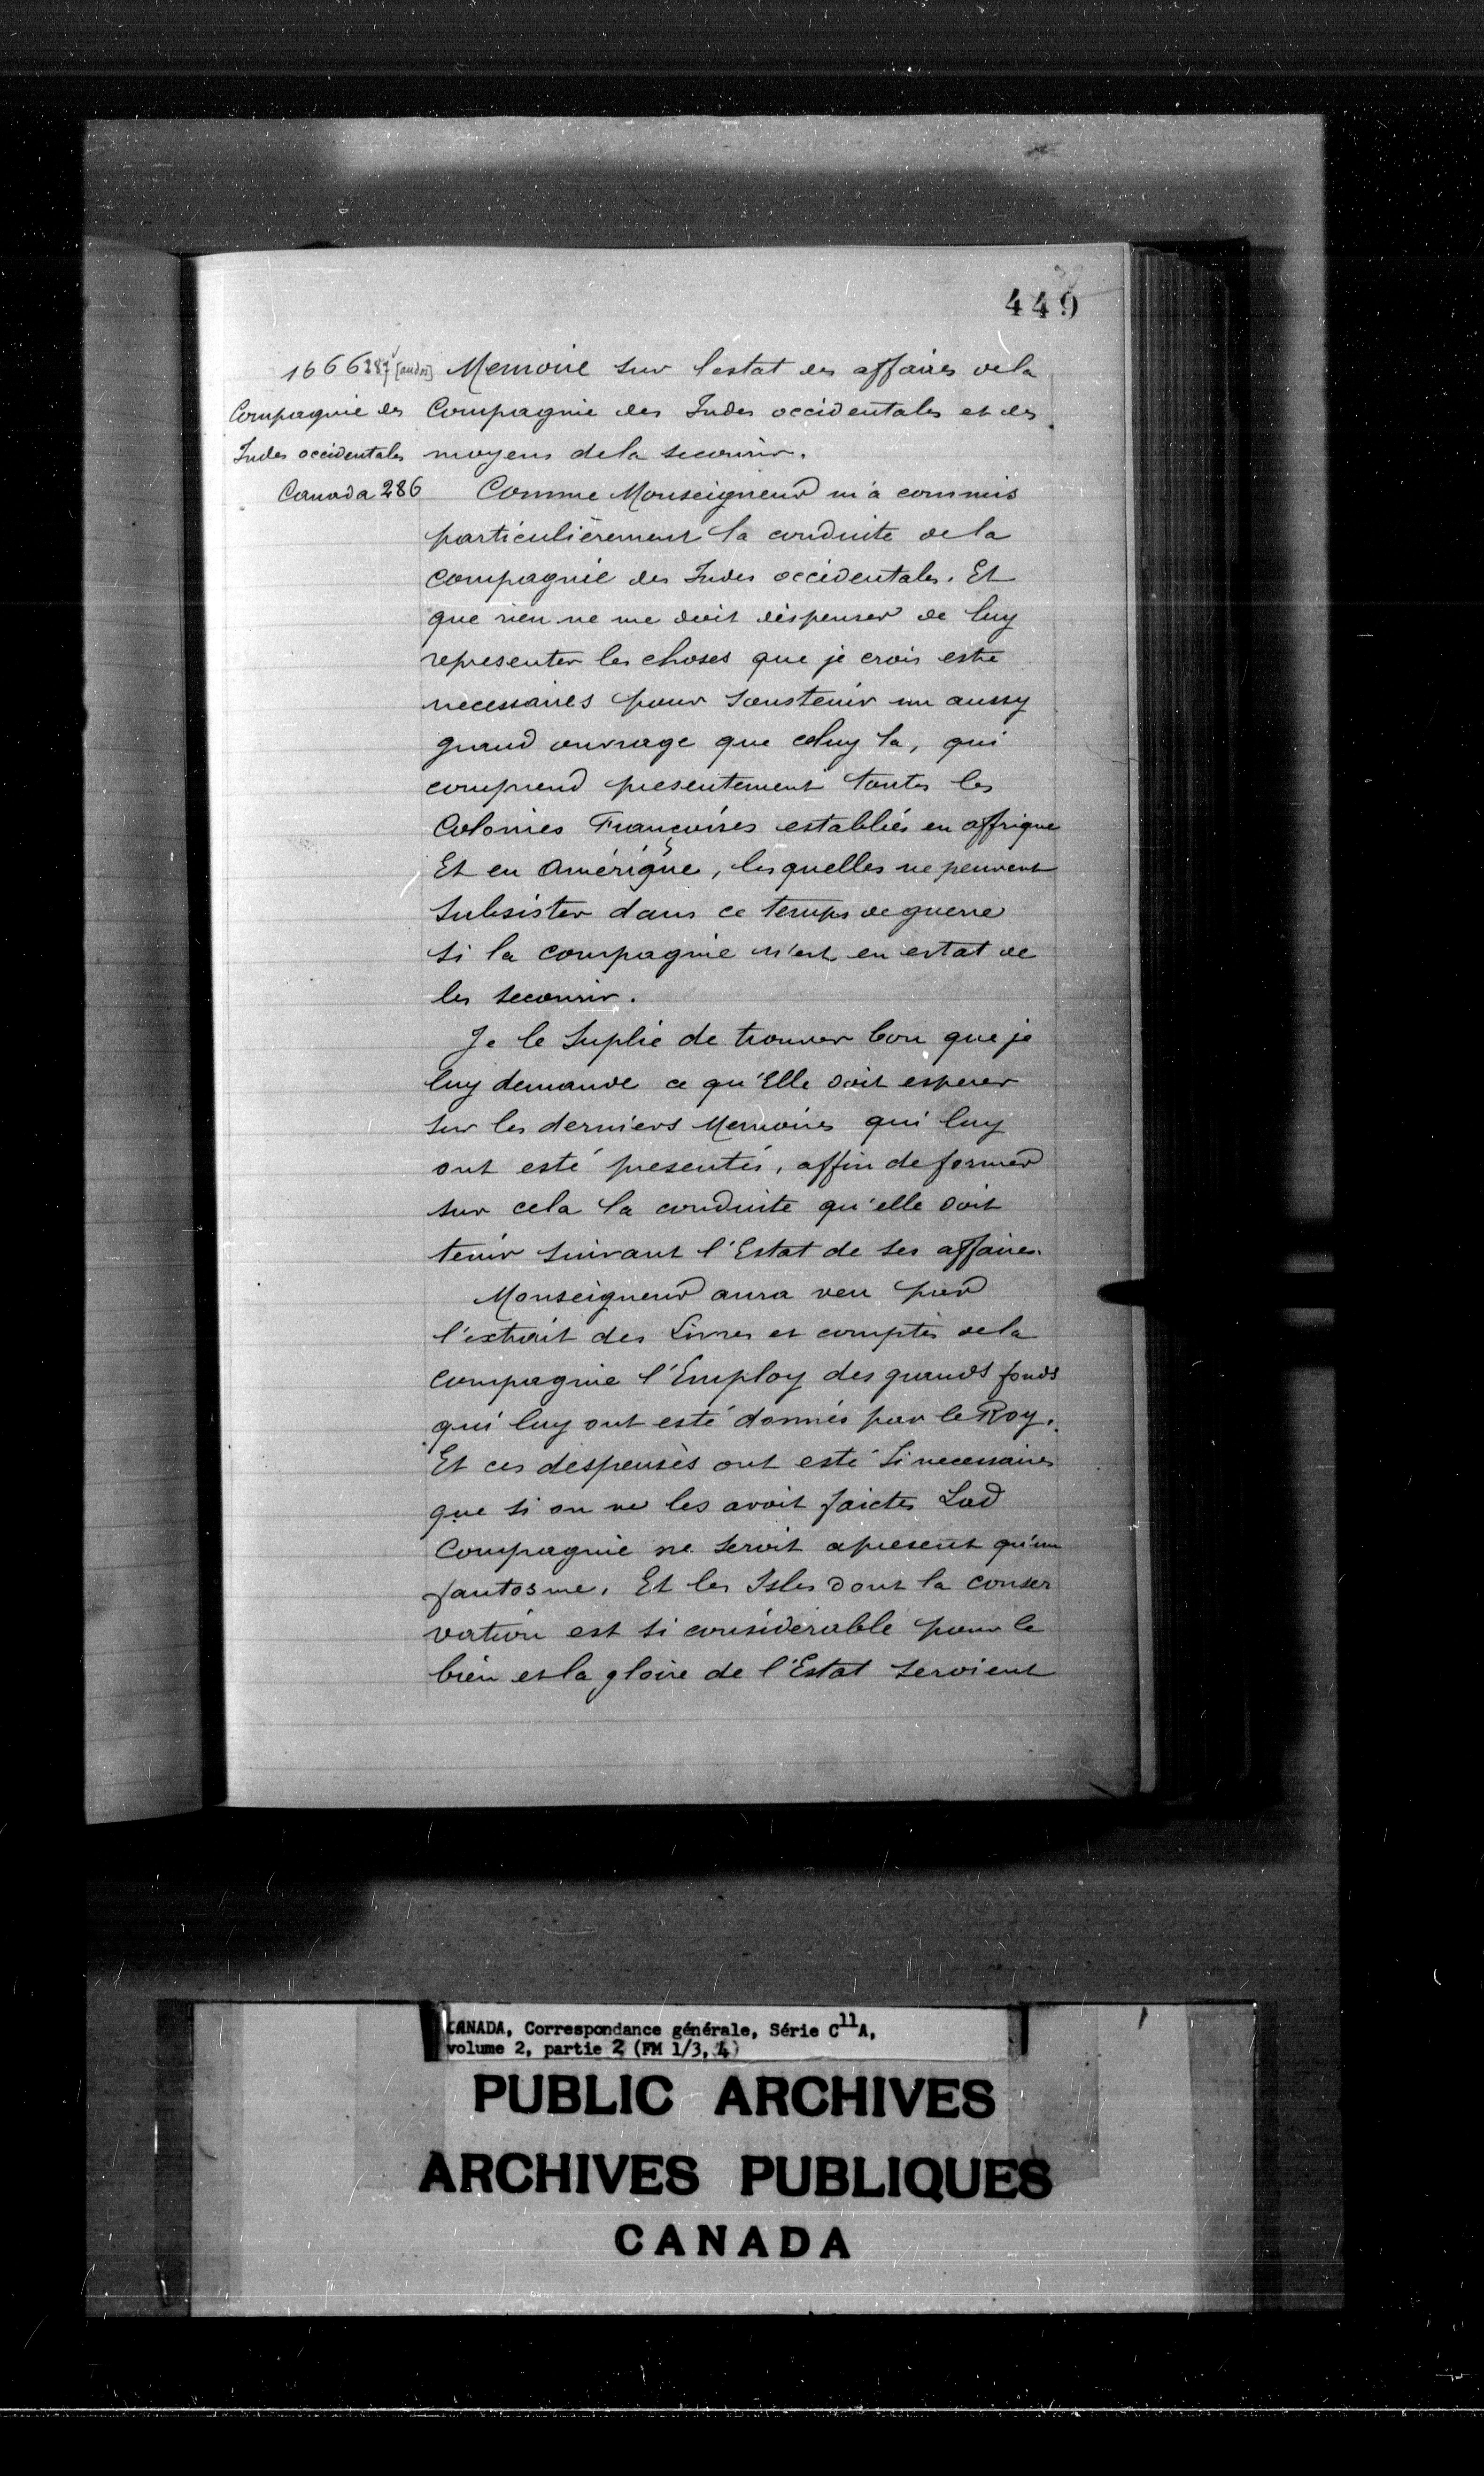 449
1666 287 [au dos]
Compagnie des
Indes occidentales
Canada 286
Memoire sur l'estat des affaires dela
Compagnie des Indes occidentales et des
moyens dela secourir.
Comme Monseigneur m'a commis
particulièrement la conduite de la
Compagnie des Indes occidentales. Et
que rien ne me doit dispenser de luy
representer les choses que je crois estre
necessaires pour soustenir un aussy
grand ouvrage que celuy la, qui
comprend presentement toutes les
Colonies Françoises establiés en affrique
Et en Amérique, lesquelles ne peuvent
subsister dans ce temps de guerre
si la compagnie n'est en estat de
les secourir.
Je le suplie de trouver bon que je
luy demande ce qu'Elle doit esperer
sur les derniers Memoires qui luy
ont esté presentés, affin de former
sur cela la conduite qu'elle doit
tenir suivant l'Estat de ses affaires.
Monseigneur aura veu par
l'extrait des Livres et comptes dela
compagnie l'Employ des grands fonds
qui luy ont esté donnés par le Roy.
Et ces despenses ont esté si necessaires
que si on ne les avoit faictes Lad
Compagnie ne seroit apresent qu'un
fantosme. Et les Isles dont la conser
vation est si considerable pour le
bien et la gloire de l'Estat seroient
CANADA, Correspondance générale, Série C11A,
volume 2, partie 2 (FM 1/3, 4)
PUBLIC ARCHIVES
ARCHIVES PUBLIQUES
CANADA